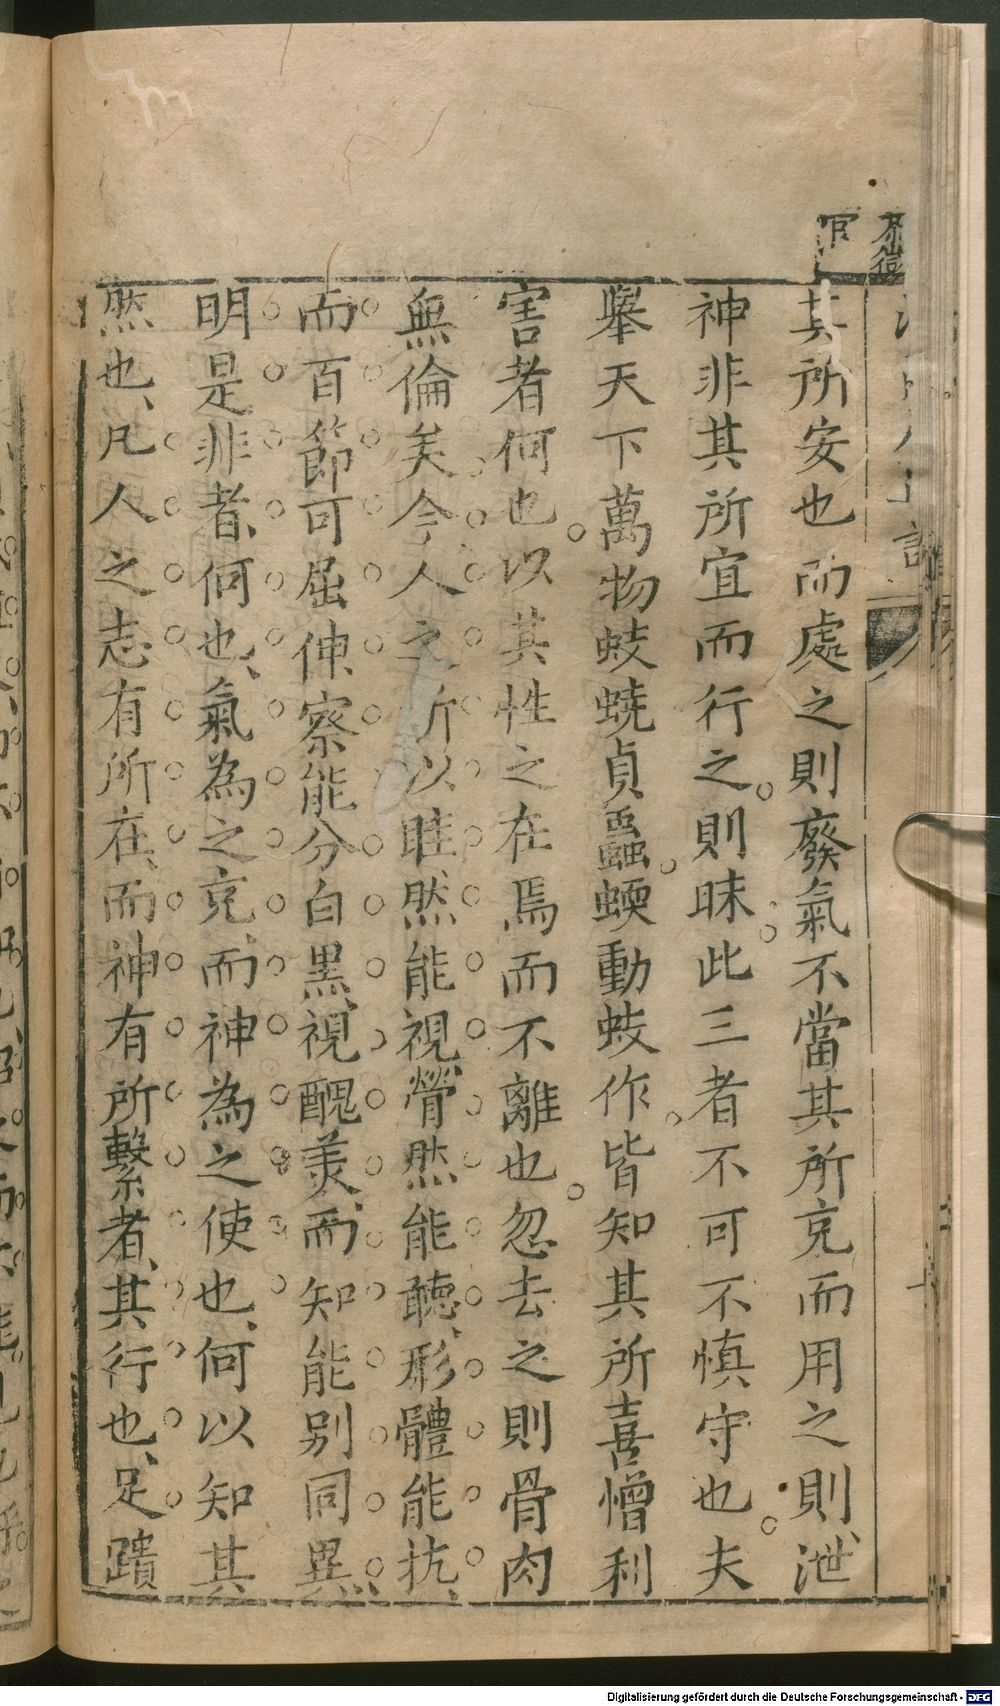 官
其所安也而處之則廢氣不當其所充而用之則泄
神非其所宜而行之則昧此三者不可不慎守也夫
舉天下萬物蚑蟯貞蟲蝡動蚑作皆知其所喜憎利
害者何也以其性之在焉而不離也忽去之則骨肉
無倫矣今人之所以眭然能視䁝然能聽形體能抗
而百節可屈伸察能分白黑視醜美而知能别同異
明是非者何也氣為之充而神為之使也何以知其
然也凡人之志有所在而神有所繫者其行也足蹪
Digitalisierung gefördert durch die Deutsche Forschungsgemeinschaft - DFG